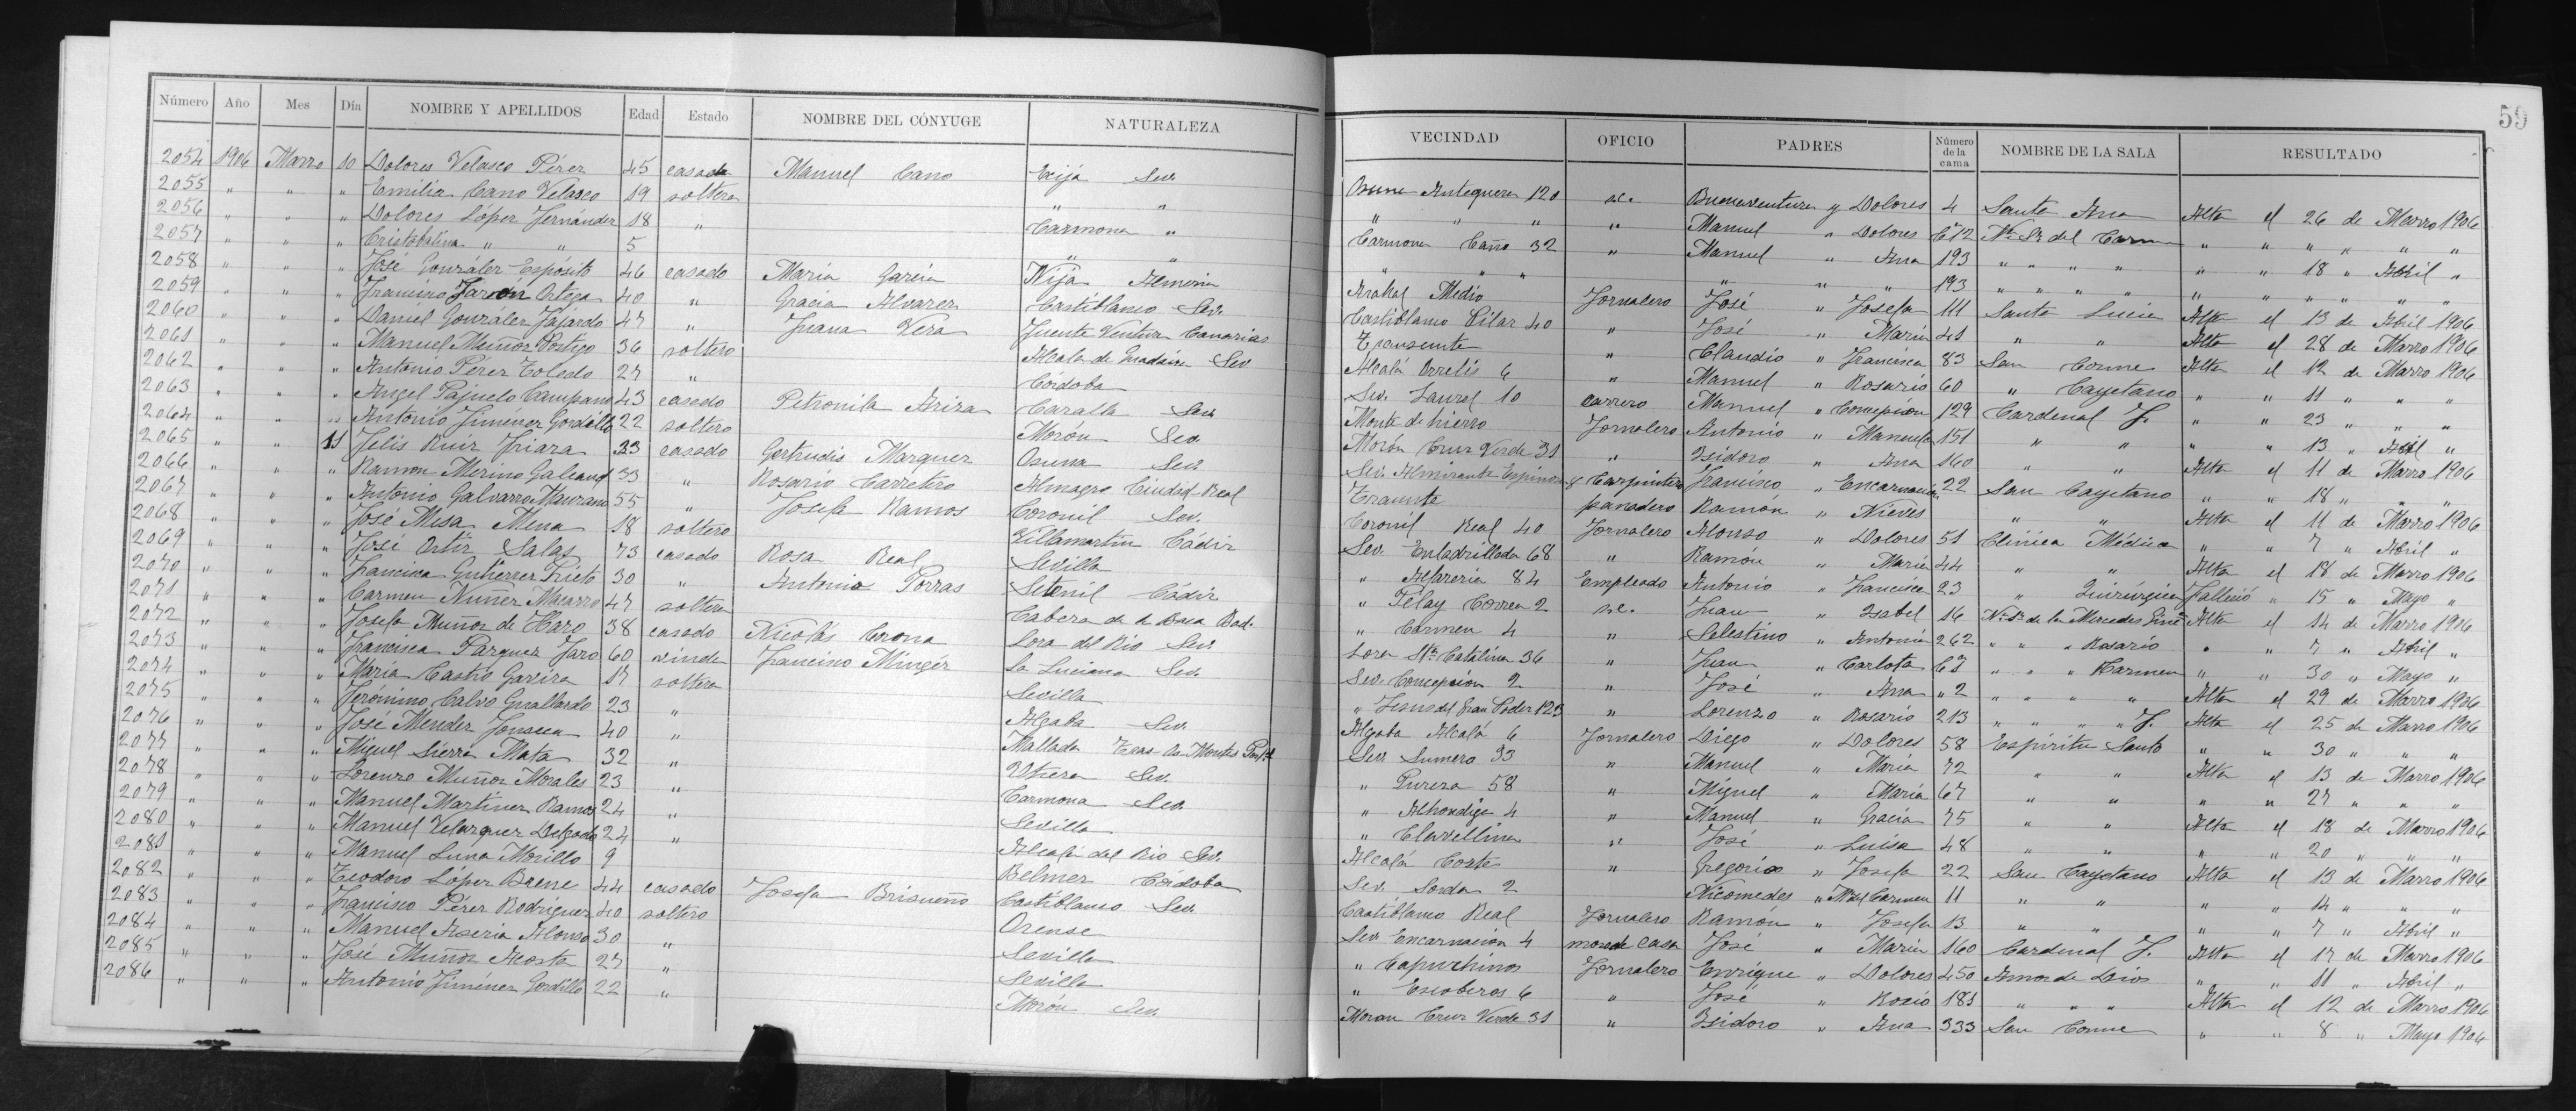 59
Número Año Mes Día NOMBRE Y APELLIDOS Edad Estado NOMBRE DEL CÓNYUGE NATURALEZA VECINDAD OFICIO PADRES Número de la cama NOMBRE DE LA SALA RESULTADO
2054 1906 Marzo 10 Dolores Velasco Pérez 45 casada Manuel Cano Ecija Sev. Osuna Antequera 120 s.c. Buenaventura y Dolores 4 Santa Ana Alta el 26 de Marzo 1906
2055 " " " Emilia Cano Velasco 19 soltera " " " " " " Manuel " Dolores Cª12 Nª Sª del Carmen " " " " " "
2056 " " " Dolores López Fernández 18 " Carmona " Carmona Caño 32 " Manuel " Ana 193 " " " " " " 18 " Abril "
2057 " " " Cristobalina " " 5 " " " " " " " " 193 " " " " " " " " " "
2058 " " " José González Espósito 46 casado María García Nija Almería Arahal Medio Jornalero José " Josefa 111 Santa Lucia Alta el 13 de Abril 1906
2059 " " " Francisco Jarón Ortega 40 " Gracia Alvarez Castiblanco Sev. Castiblanco Pilar 40 " José " María 41 " " Alta el 28 de Marzo 1906
2060 " " " Daniel González Fajardo 47 " Juana Vera Fuente Ventura Canarias Transeunte " Claudio " Francisca 83 San Cosme Alta el 12 de Marzo 1906
2061 " " " Manuel Muñoz Postigo 36 soltero Alcala de Guadaira Sev. Alcalá Orrelis 6 " Manuel " Rosario 60 " Cayetano " " 11 " " "
2062 " " " Antonio Pérez Toledo 27 " Córdoba Sev. Laurel 10 carrero Manuel " Concepción 129 Cardenal J. " " 23 " " "
2063 " " " Angel Pajuelo Campano 43 casado Petronila Ariza Cazalla Sev. Monte de hierro Jornalero Antonio " Manuela 151 " " " " 13 " Abril "
2064 " " " Antonio Jiménez Gordillo 22 soltero Morón Sev. Morón Cruz Verde 31 " Isidoro " Ana 160 " " Alta el 11 de Marzo 1906
2065 " " 11 Felis Ruiz Friaza 33 casado Gertrudis Marquez Osuna Sev. Sev. Almirante Espinosa 8 Carpintero Francisco " Encarnación 22 San Cayetano " " 18 " " "
2066 " " " Ramon Merino Galeano 33 " Rosario Carretero Almagro Ciudad Real Traunte panadero Ramón " Nieves " " Alta el 11 de Marzo 1906
2067 " " " Antonio Galvarro Manzano 55 " Josefa Ramos Coronil Sev. Coronil Real 40 Jornalero Alonso " Dolores 51 Clinica Médica " " 7 " Abril "
2068 " " " José Mesa Mena 18 soltero Villamartín Cádiz Sev. Enladrillada 68 " Ramón " María 44 " " Alta el 18 de Marzo 1906
2069 " " " José Ortíz Salas 73 casado Rosa Real Sevilla " Alfarería 84 Empleado Antonio " Francisca 23 " Quirúrgica Falleció " 15 " Mayo "
2070 " " " Francisca Gutierrez Prieto 30 " Antonio Porras Setenil Cádiz " Pélay Correa 2 s.c. Juan " Isabel 16 Nª Sª de la Mercedes Alta el 14 de Marzo 1906
2071 " " " Carmen Nuñez Macarro 47 soltera Cabeza de la Baca Bad. " Carmen 4 " Selestino " Antonia 262 " " " Rosario " " 7 " Abril "
2072 " " " Josefa Muñoz de Haro 38 casado Nicolás Corona Lora del Rio Sev. Lora Sta Catalina 36 " Juan " Carlota Cª1 " " " Carmen " " 30 " Mayo "
2073 " " " Francisca Parquez Jaro 60 viuda Francisco Mingéz La Luciana Sev. Sev. Concepción 2 " José " Ana " 2 " " " " Alta el 29 de Marzo 1906
2074 " " " María Castro Gavira 17 soltera Sevilla " Jesus del Gran Poder 123 " Lorenzo " Rosario 213 " " " " J. Alta el 25 de Marzo 1906
2075 " " " Jerónimo Calvo Guallardo 23 " Algaba Sev. Algaba Alcalá 6 Jornalero Diego " Dolores 58 Espiritu Santo " " 30 " " "
2076 " " " José Mender Fonseca 40 " Mallada Tras los Montes Port. Sev. Sumera 33 " Manuel " María 72 " " Alta el 13 de Marzo 1906
2077 " " " Miguel Sierra Mata 32 " Utrera Sev. " Pureza 58 " Miguel " María 67 " " " " 27 " " "
2078 " " " Lorenzo Muñoz Morales 23 " Carmona Sev. " Alhondiga 4 " Manuel " Gracia 75 " " Alta el 18 de Marzo 1906
2079 " " " Manuel Martínez Ramos 24 " Sevilla " Clavellina " José " Luisa 48 " " " " 20 " " "
2080 " " " Manuel Velazquez Delgado 24 " Alcalá del Rio Sev. Alcalá Coste " Gregorio " Josefa 22 San Cayetano Alta el 13 de Marzo 1906
2081 " " " Manuel Luna Morillo 9 Belmez Córdoba Sev. Sorda 2 Nicomedes " Mª del Carmen 11 " " " " 14 " " "
2082 " " " Teodoro López Baene 44 casado Josefa Brisueño Castiblanco Sev. Castiblanco Real Jornalero Ramón " Josefa 13 " " " " 7 " Abril "
2083 " " " Francisco Pérez Rodriguez 40 soltero Orense Sev. Encarnación 4 mozo de casa José " María 160 Cardenal J. Alta el 17 de Marzo 1906
2084 " " " Manuel Aseria Alonso 30 " Sevilla " Capuchinos Jornalero Enrique " Dolores 450 Amor de Dios " " 11 " Abril "
2085 " " " José Muñoz Acosta 27 " Sevilla " Escoberos 6 " José " Rocio 181 " " " Alta el 12 de Marzo 1906
2086 " " " Antonio Jiménez Gordillo 22 " Morón Sev. Moron Cruz Verde 31 " Isidoro " Ana 333 San Cosme " " 8 " Mayo 1906